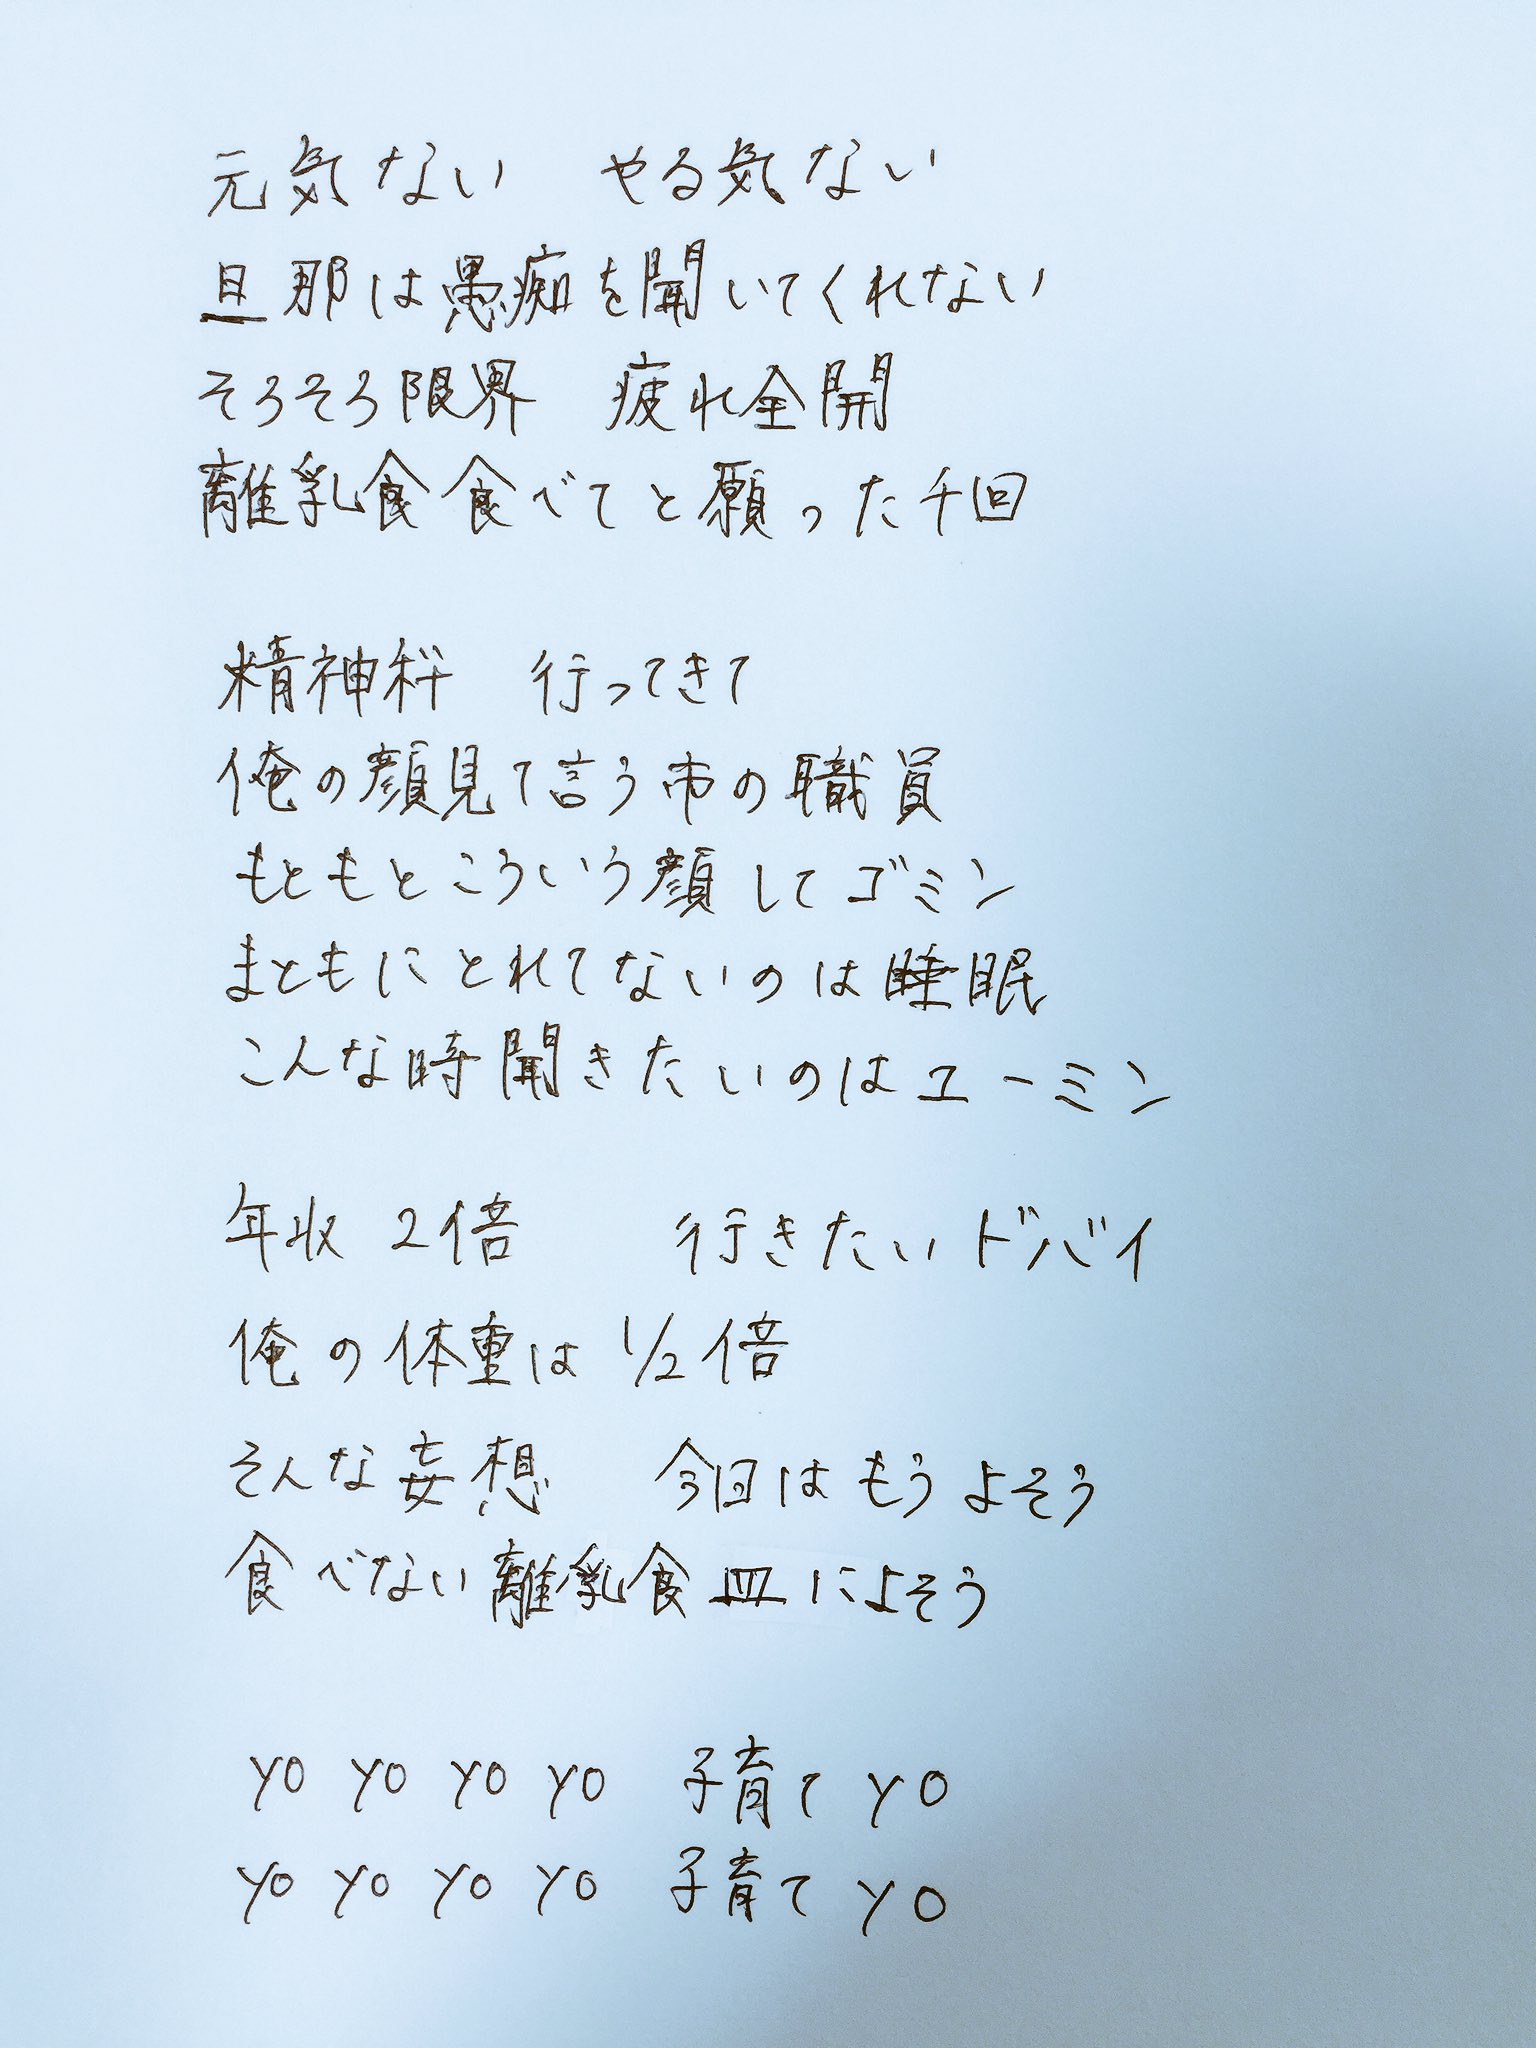 元気ない やる気ない
旦那は愚痴を聞いてくれない
そろそろ限界 疲れ全開
離乳食食べてと願った千回
精神科 行ってきて
俺の顔見て言う市の職員
もともとこういう顔してゴミン
まともにとれてないのは睡眠
こんな時聞きたいのはユーミン
年収2倍 行きたいドバイ
俺の体重は1/2倍
そんな妄想 今日はもうよそう
食べない離乳食皿によそう
yo yo yo yo 子育てyo
yo yo yo yo 子育てyo